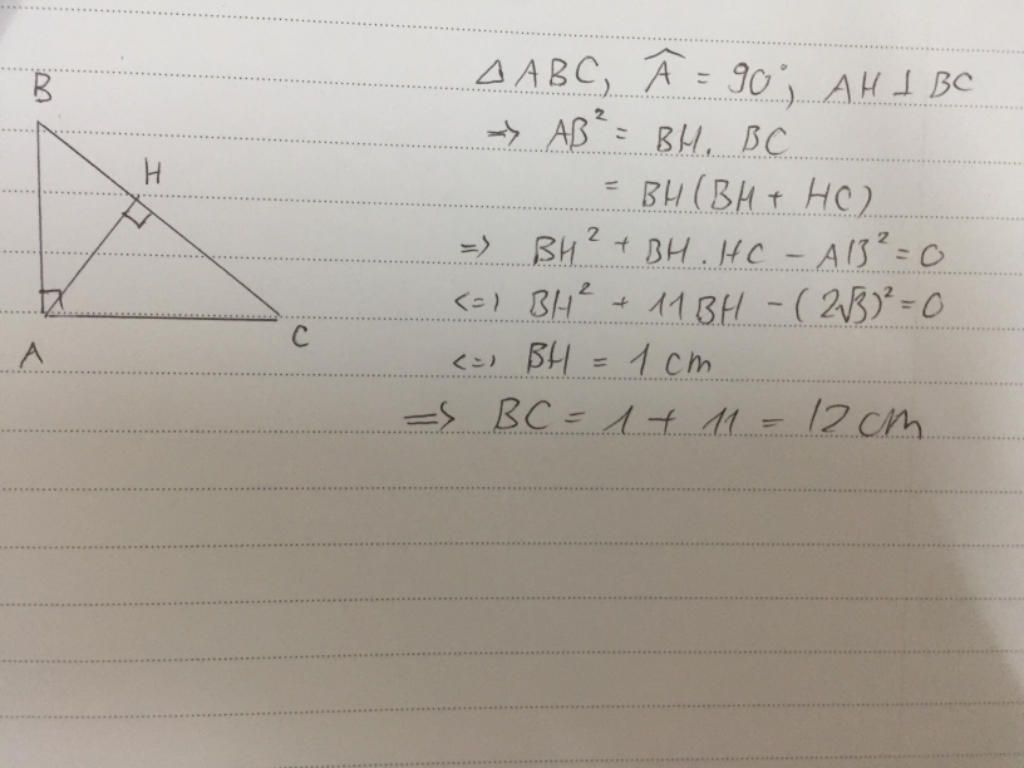 B
H
A
C
△ABC, Â = 90°, AH ⊥ BC
=> AB² = BH. BC
= BH(BH + HC)
=> BH² + BH.HC - AB² = 0
<=> BH² + 11BH - (2√3)² = 0
<=> BH = 1 cm
=> BC = 1 + 11 = 12 cm